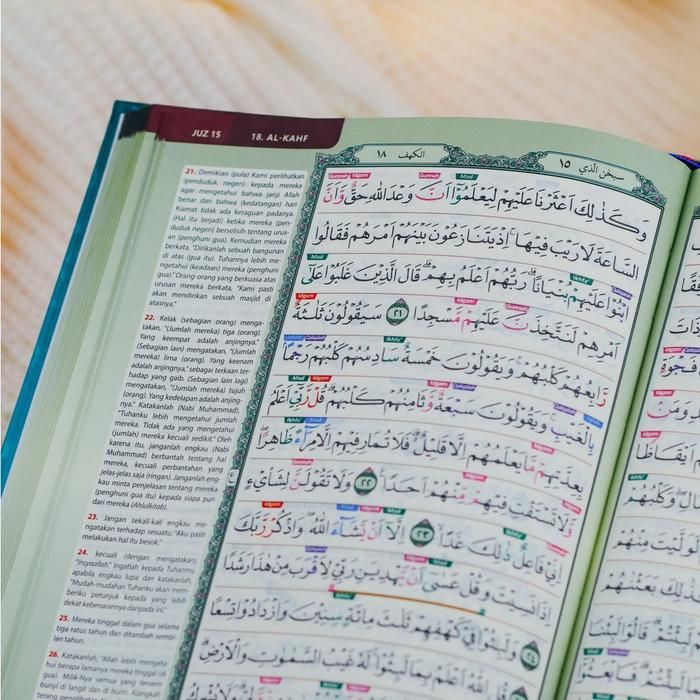 JUZ 15
18. AL-KAHF
الكهف ١٨
سبحن الذي ١٥
21. Demikian (pula) Kami perlihatkan
(penduduk negeri) kepada mereka
agar mengetahui bahwa janji Allah
benar dan bahwa (kedatangan) hari
Kiamat tidak ada keraguan padanya.
(Hal itu terjadi) ketika mereka (pen-
duduk negeri) berselisih tentang urus-
an (penghuni gua). Kemudian mereka
berkata, "Dirikanlah sebuah bangunan
di atas (gua itu). Tuhannya lebih me-
ngetahui (keadaan) mereka (penghuni
gua)." Orang-orang yang berkuasa atas
urusan mereka berkata, "Kami pasti
akan mendirikan sebuah masjid di
atasnya."
22. Kelak (sebagian orang) menga-
takan, "(Jumlah mereka) tiga (orang).
Yang keempat adalah anjingnya."
(Sebagian lain) mengatakan, "(Jumlah
mereka) lima (orang). Yang keenam
adalah anjingnya," sebagai terkaan ter-
hadap yang gaib. (Sebagian lain lagi)
mengatakan, "(Jumlah mereka) tujuh
(orang). Yang kedelapan adalah anjing-
nya." Katakanlah (Nabi Muhammad),
"Tuhanku lebih mengetahui jumlah
mereka. Tidak ada yang mengetahui
(jumlah) mereka kecuali sedikit." Oleh
karena itu, janganlah engkau (Nabi
Muhammad) berbantah tentang hal
mereka, kecuali perbantahan yang
jelas-jelas saja (ringan). Janganlah eng-
kau minta penjelasan tentang mereka
(penghuni gua itu) kepada siapa pun
dari mereka (Ahlulkitab).
23. Jangan sekali-kali engkau me-
ngatakan terhadap sesuatu, "Aku pasti
melakukan hal itu besok,"
24. kecuali (dengan mengatakan),
"Insyaallah." Ingatlah kepada Tuhanmu
apabila engkau lupa dan katakanlah,
"Mudah-mudahan Tuhanku akan mem-
beriku petunjuk kepada yang lebih
dekat kebenarannya daripada ini."
25. Mereka tinggal dalam gua selama
tiga ratus tahun dan ditambah sembi-
lan tahun.
26. Katakanlah, "Allah lebih mengeta-
hui berapa lamanya mereka tinggal (di
gua). Milik-Nya semua yang tersem-
bunyi di langit dan di bumi. Alangkah
وَكَذٰلِكَ اَعْثَرْنَا عَلَيْهِمْ لِيَعْلَمُوْٓا اَنَّ وَعْدَ اللّٰهِ حَقٌّ وَّاَنَّ
السَّاعَةَ لَا رَيْبَ فِيْهَاۚ اِذْ يَتَنَازَعُوْنَ بَيْنَهُمْ اَمْرَهُمْ فَقَالُوا
ابْنُوْا عَلَيْهِمْ بُنْيَانًاۗ رَبُّهُمْ اَعْلَمُ بِهِمْۗ قَالَ الَّذِيْنَ غَلَبُوْا عَلٰٓى
اَمْرِهِمْ لَنَتَّخِذَنَّ عَلَيْهِمْ مَّسْجِدًا ٢١ سَيَقُوْلُوْنَ ثَلٰثَةٌ
رَّابِعُهُمْ كَلْبُهُمْۚ وَيَقُوْلُوْنَ خَمْسَةٌ سَادِسُهُمْ كَلْبُهُمْ رَجْمًاۢ
بِالْغَيْبِۚ وَيَقُوْلُوْنَ سَبْعَةٌ وَّثَامِنُهُمْ كَلْبُهُمْۗ قُلْ رَّبِّيْٓ اَعْلَمُ
بِعِدَّتِهِمْ مَّا يَعْلَمُهُمْ اِلَّا قَلِيْلٌ ەۗ فَلَا تُمَارِ فِيْهِمْ اِلَّا مِرَاۤءً ظَاهِرًاۖ
وَّلَا تَسْتَفْتِ فِيْهِمْ مِّنْهُمْ اَحَدًا ٢٢ وَلَا تَقُوْلَنَّ لِشَا۟يْءٍ
اِنِّيْ فَاعِلٌ ذٰلِكَ غَدًا ٢٣ اِلَّآ اَنْ يَّشَاۤءَ اللّٰهُ ۖوَاذْكُرْ رَّبَّكَ
اِذَا نَسِيْتَ وَقُلْ عَسٰٓى اَنْ يَّهْدِيَنِ رَبِّيْ لِاَقْرَبَ مِنْ هٰذَا رَشَدًا
وَلَبِثُوْا فِيْ كَهْفِهِمْ ثَلٰثَ مِائَةٍ سِنِيْنَ وَازْدَادُوْا تِسْعًا
قُلِ اللّٰهُ اَعْلَمُ بِمَا لَبِثُوْاۚ لَهٗ غَيْبُ السَّمٰوٰتِ وَالْاَرْضِۗ